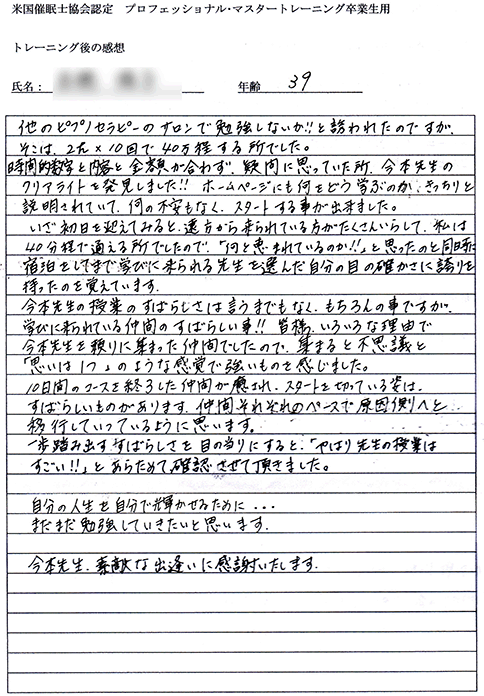 米国催眠士協会認定　プロフェッショナル・マスタートレーニング卒業生用
トレーニング後の感想
氏名：
年齢 39
他のヒプノセラピーのサロンで勉強しないか!!と誘われたのですが、
そこは、2h×10回で40万程する所でした。
時間的数字と内容と金額が合わず、疑問に思っていた所、今本先生の
クリアライトを発見しました!! ホームページにも何をどう学ぶのか、きっちりと
説明されていて、何の不安もなく、スタートする事が出来ました。
いざ初日を迎えてみると、遠方から来られている方がたくさんいらして、私は
40分程で通える所でしたので、「何と恵まれているのか!!」と思ったのと同時に
宿泊をしてまで学びに来られる先生を選んだ自分の目の確かさに誇りを
持ったのを覚えています。
今本先生の授業のすばらしさは言うまでもなく、もちろんの事ですが、
学びに来られている仲間のすばらしい事!! 皆様、いろいろな理由で
今本先生を頼りに集まった仲間でしたので、集まると不思議と
「思いは1つ」のような感覚で強いものを感じました。
10日間のコースを終了した仲間が癒され、スタートを切っている姿は、
すばらしいものがあります。仲間それぞれのペースで原因側へと
移行していっているように思います。
一歩踏み出すすばらしさを目の当りにすると、「やはり先生の授業は
すごい!!」とあらためて確認させて頂きました。
自分の人生を自分で輝かせるために・・・
まだまだ勉強していきたいと思います。
今本先生、素敵な出逢いに感謝いたします。